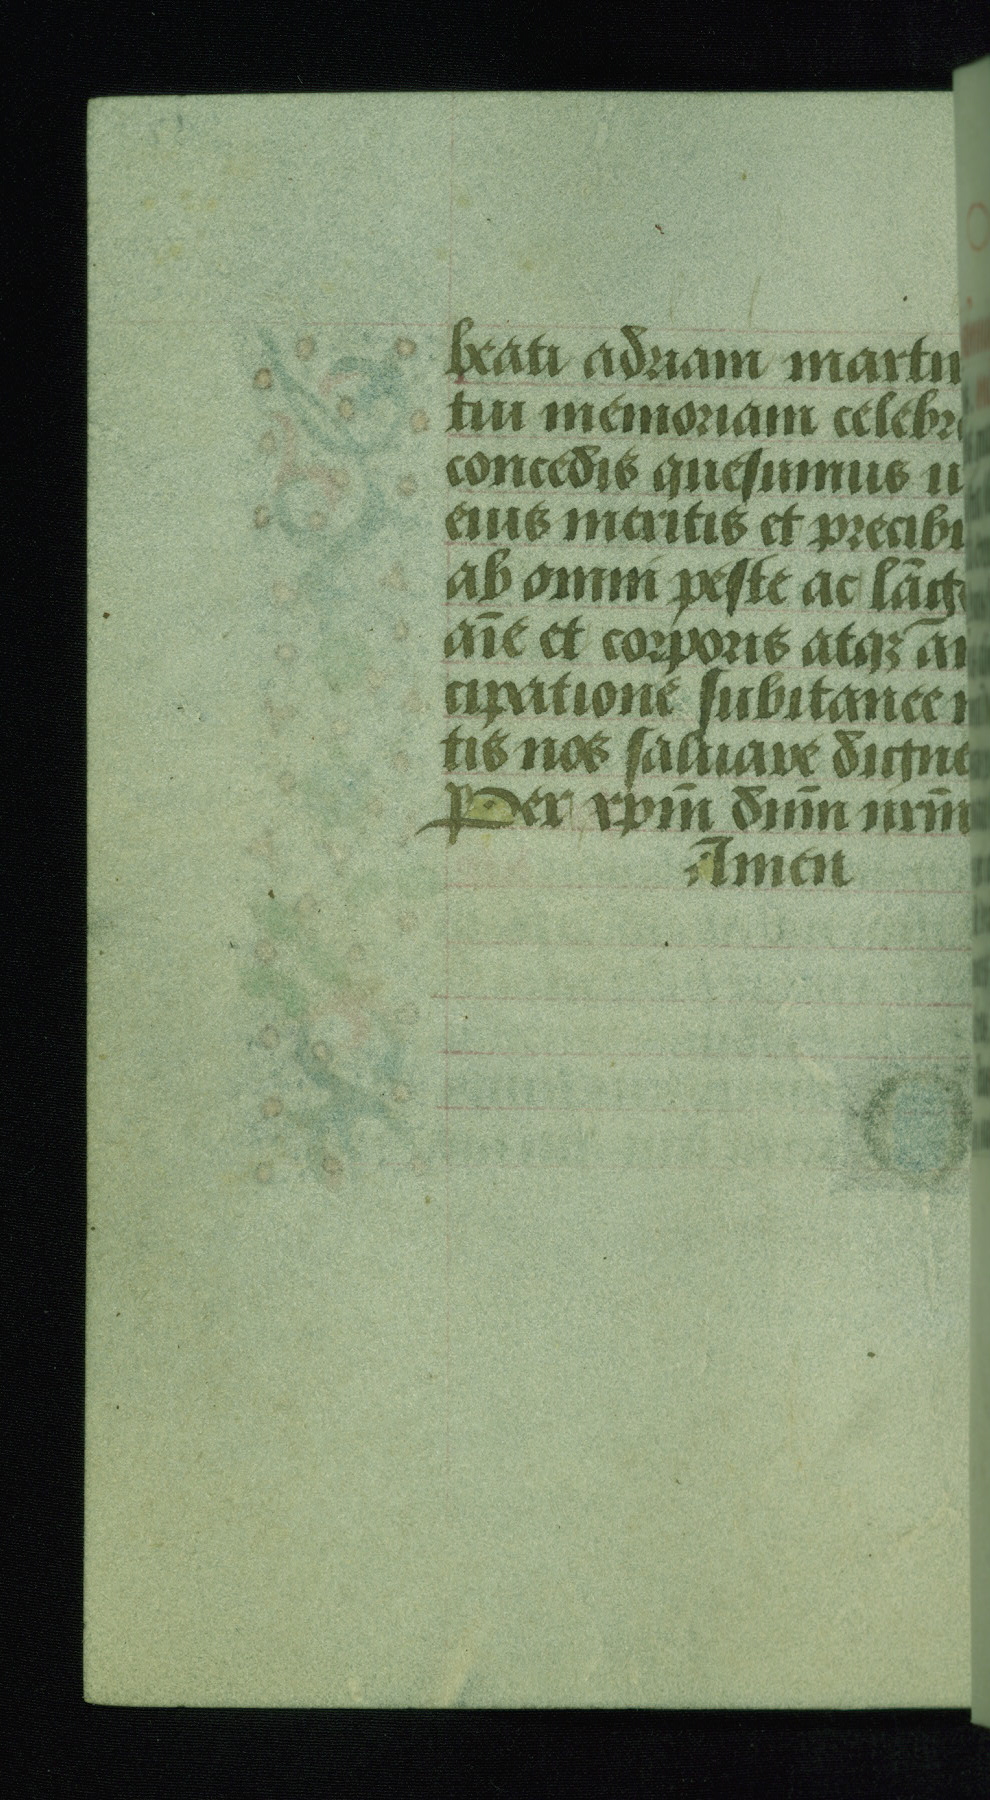 beati adriani marti
tui memoriam celebr
concedis quesumus u
eius meritis et precib
ab omni peste ac lāg
aīe et corporis atqꝫ
cipatione subitanee
tis nos saluare digne
Per xpm̄ dnm̄ nrm̄
Amen